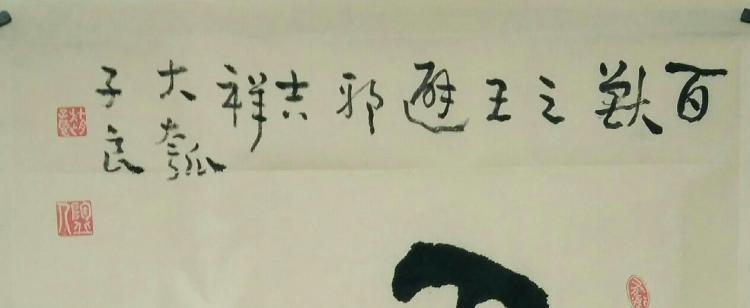 百獸之王避邪吉祥
大瓠
子良